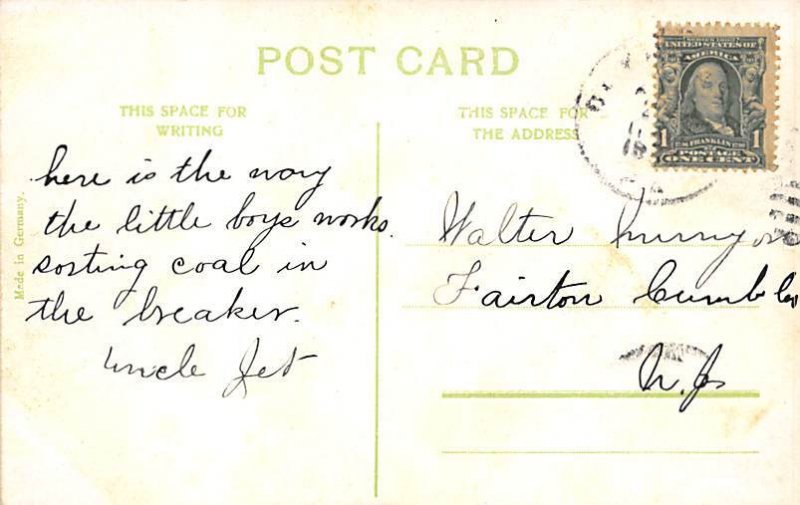 POST CARD
THIS SPACE FOR
WRITING
THIS SPACE FOR
THE ADDRESS
UNITED STATES OF
AMERICA
1 FRANKLIN 1
POSTAGE
ONE CENT
Made in Germany.
here is the way
the little boys works.
sorting coal in
the breaker.
Uncle Jet
Walter
Fairton Cumb Co
N.J.